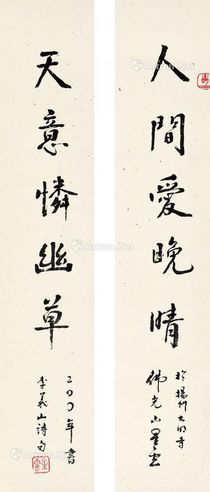 人間愛晚晴
於揚州大明寺
佛光山星雲
天意憐幽草
二〇〇八年書
李義山詩句